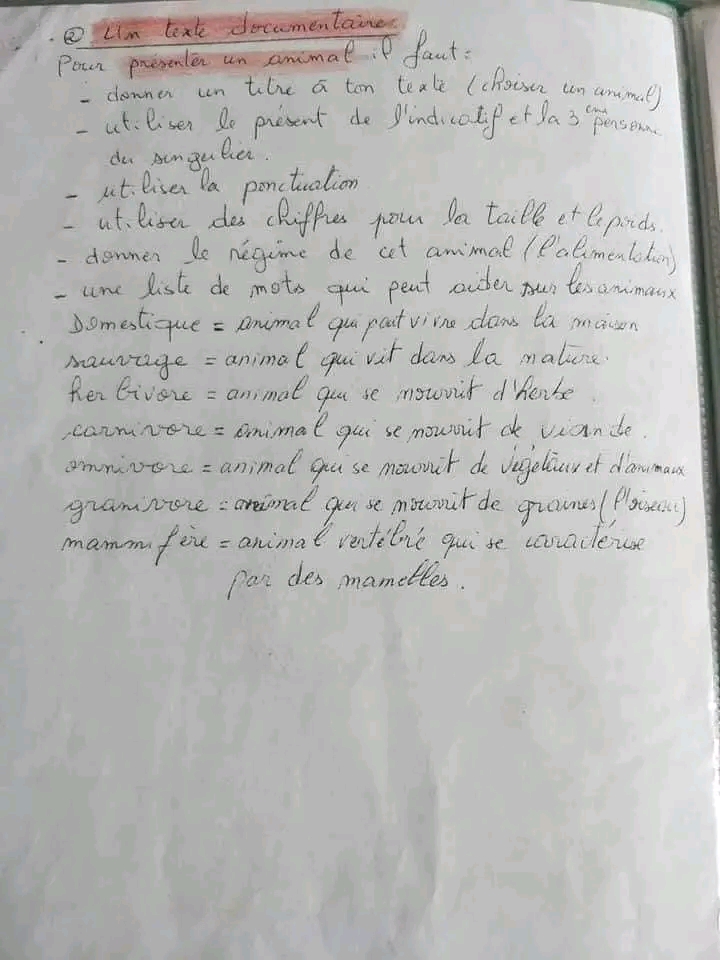 ② Un texte documentaire.
Pour présenter un animal il faut :
- donner un titre à ton texte (choiser un animal)
- utiliser le présent de l'indicatif et la 3ème personne
du singulier.
- utiliser la ponctuation
- utiliser des chiffres pour la taille et le poids.
- donner le régime de cet animal (l'alimentation)
- une liste de mots qui peut aider sur les animaux
Domestique = animal qui peut vivre dans la maison
sauvage = animal qui vit dans la nature.
herbivore = animal qui se nourrit d'herbe.
carnivore = animal qui se nourrit de viande.
omnivore = animal qui se nourrit de végétaux et d'animaux
granivore = animal qui se nourrit de graines (l'oiseau)
mammifère = animal vertébré qui se caractérise
par des mamelles.